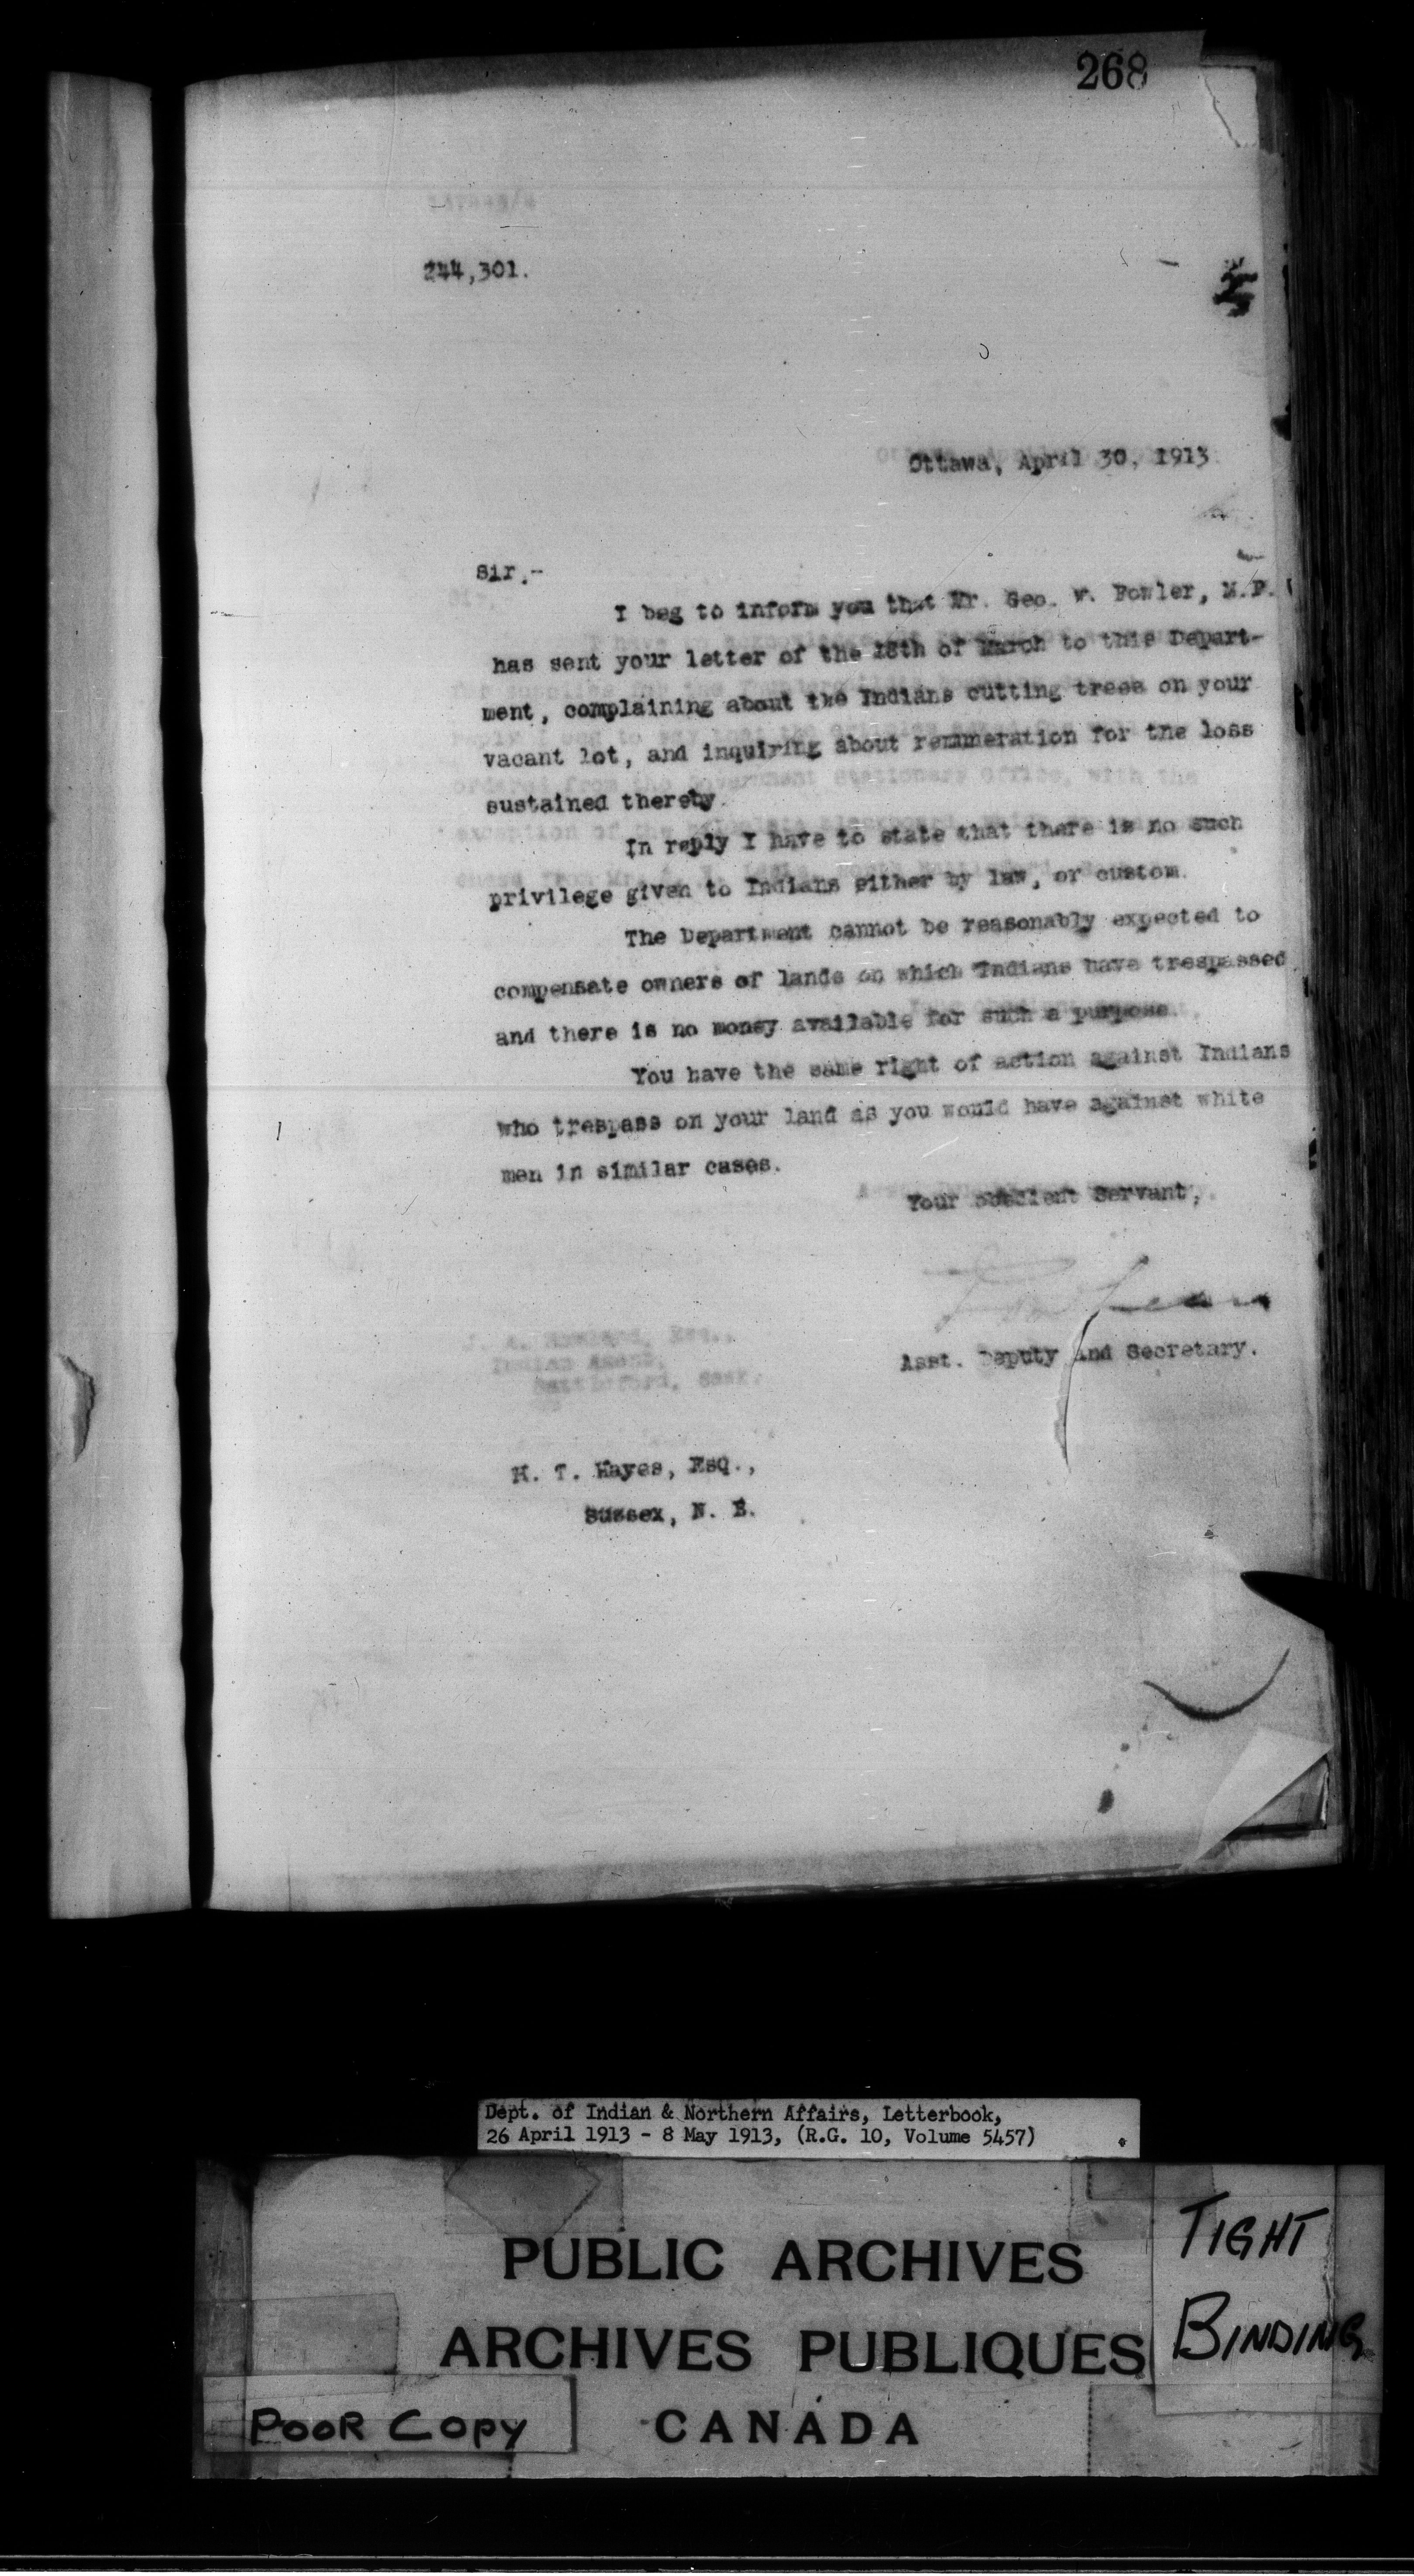 268
244,301.
Ottawa, April 30, 1913
Sir,-
I beg to inform you that Mr. Geo. W. Fowler, M.P.
has sent your letter of the 18th of March to this Depart-
ment, complaining about the Indians cutting trees on your
vacant lot, and inquiring about remuneration for the loss
sustained thereby.
In reply I have to state that there is no such
privilege given to Indians either by law, or custom.
The Department cannot be reasonably expected to
compensate owners of lands on which Indians have trespassed
and there is no money available for such a purpose.
You have the same right of action against Indians
who trespass on your land as you would have against white
men in similar cases.
Your obedient servant,
Asst. Deputy and Secretary.
Indian Agent,
Battleford, Sask.
H. T. Hayes, Esq.,
Sussex, N. B.
Dept. of Indian & Northern Affairs, Letterbook,
26 April 1913 - 8 May 1913, (R.G. 10, Volume 5457)
PUBLIC ARCHIVES
ARCHIVES PUBLIQUES
CANADA
TIGHT
BINDING
POOR COPY